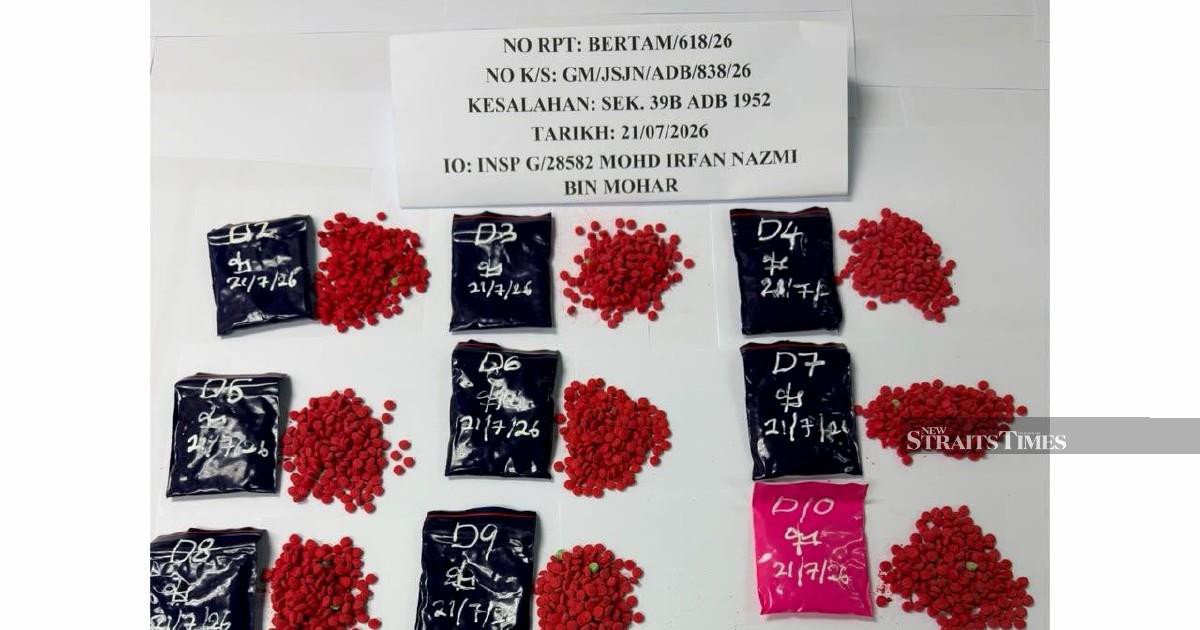 NO RPT: BERTAM/618/26
NO K/S: GM/JSJN/ADB/838/26
KESALAHAN: SEK. 39B ADB 1952
TARIKH: 21/07/2026
IO: INSP G/28582 MOHD IRFAN NAZMI
BIN MOHAR
D2
21/7/26
D3
21/7/26
D4
21/7/2
D5
21/7/26
D6
21/7/26
D7
21/7/26
NEW
STRAITS TIMES
D8
21/7/26
D9
21/7/26
D10
21/7/26